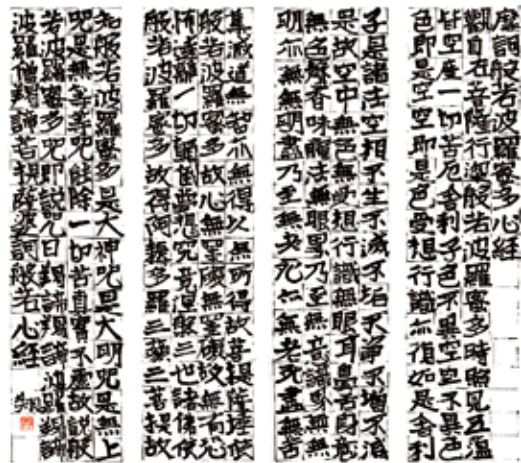 摩訶般若波羅蜜多心経
觀自在菩薩行深般若波羅蜜多時照見五蘊
皆空度一切苦厄舎利子色不異空空不異色
色即是空空即是色受想行識亦復如是舎利
子是諸法空相不生不滅不垢不浄不増不減
是故空中無色無受想行識無眼耳鼻舌身意
無色聲香味觸法無眼界乃至無意識界無無
明亦無無明盡乃至無老死亦無老死盡無苦
集滅道無智亦無得以無所得故菩提薩埵依
般若波羅蜜多故心無罣礙無罣礙故無有恐
怖遠離一切顛倒夢想究竟涅槃三世諸佛依
般若波羅蜜多故得阿耨多羅三藐三菩提故
知般若波羅蜜多是大神呪是大明呪是無上
呪是無等等呪能除一切苦真實不虚故説般
若波羅蜜多呪即説呪曰羯諦羯諦波羅羯諦
波羅僧羯諦菩提薩婆訶般若心経